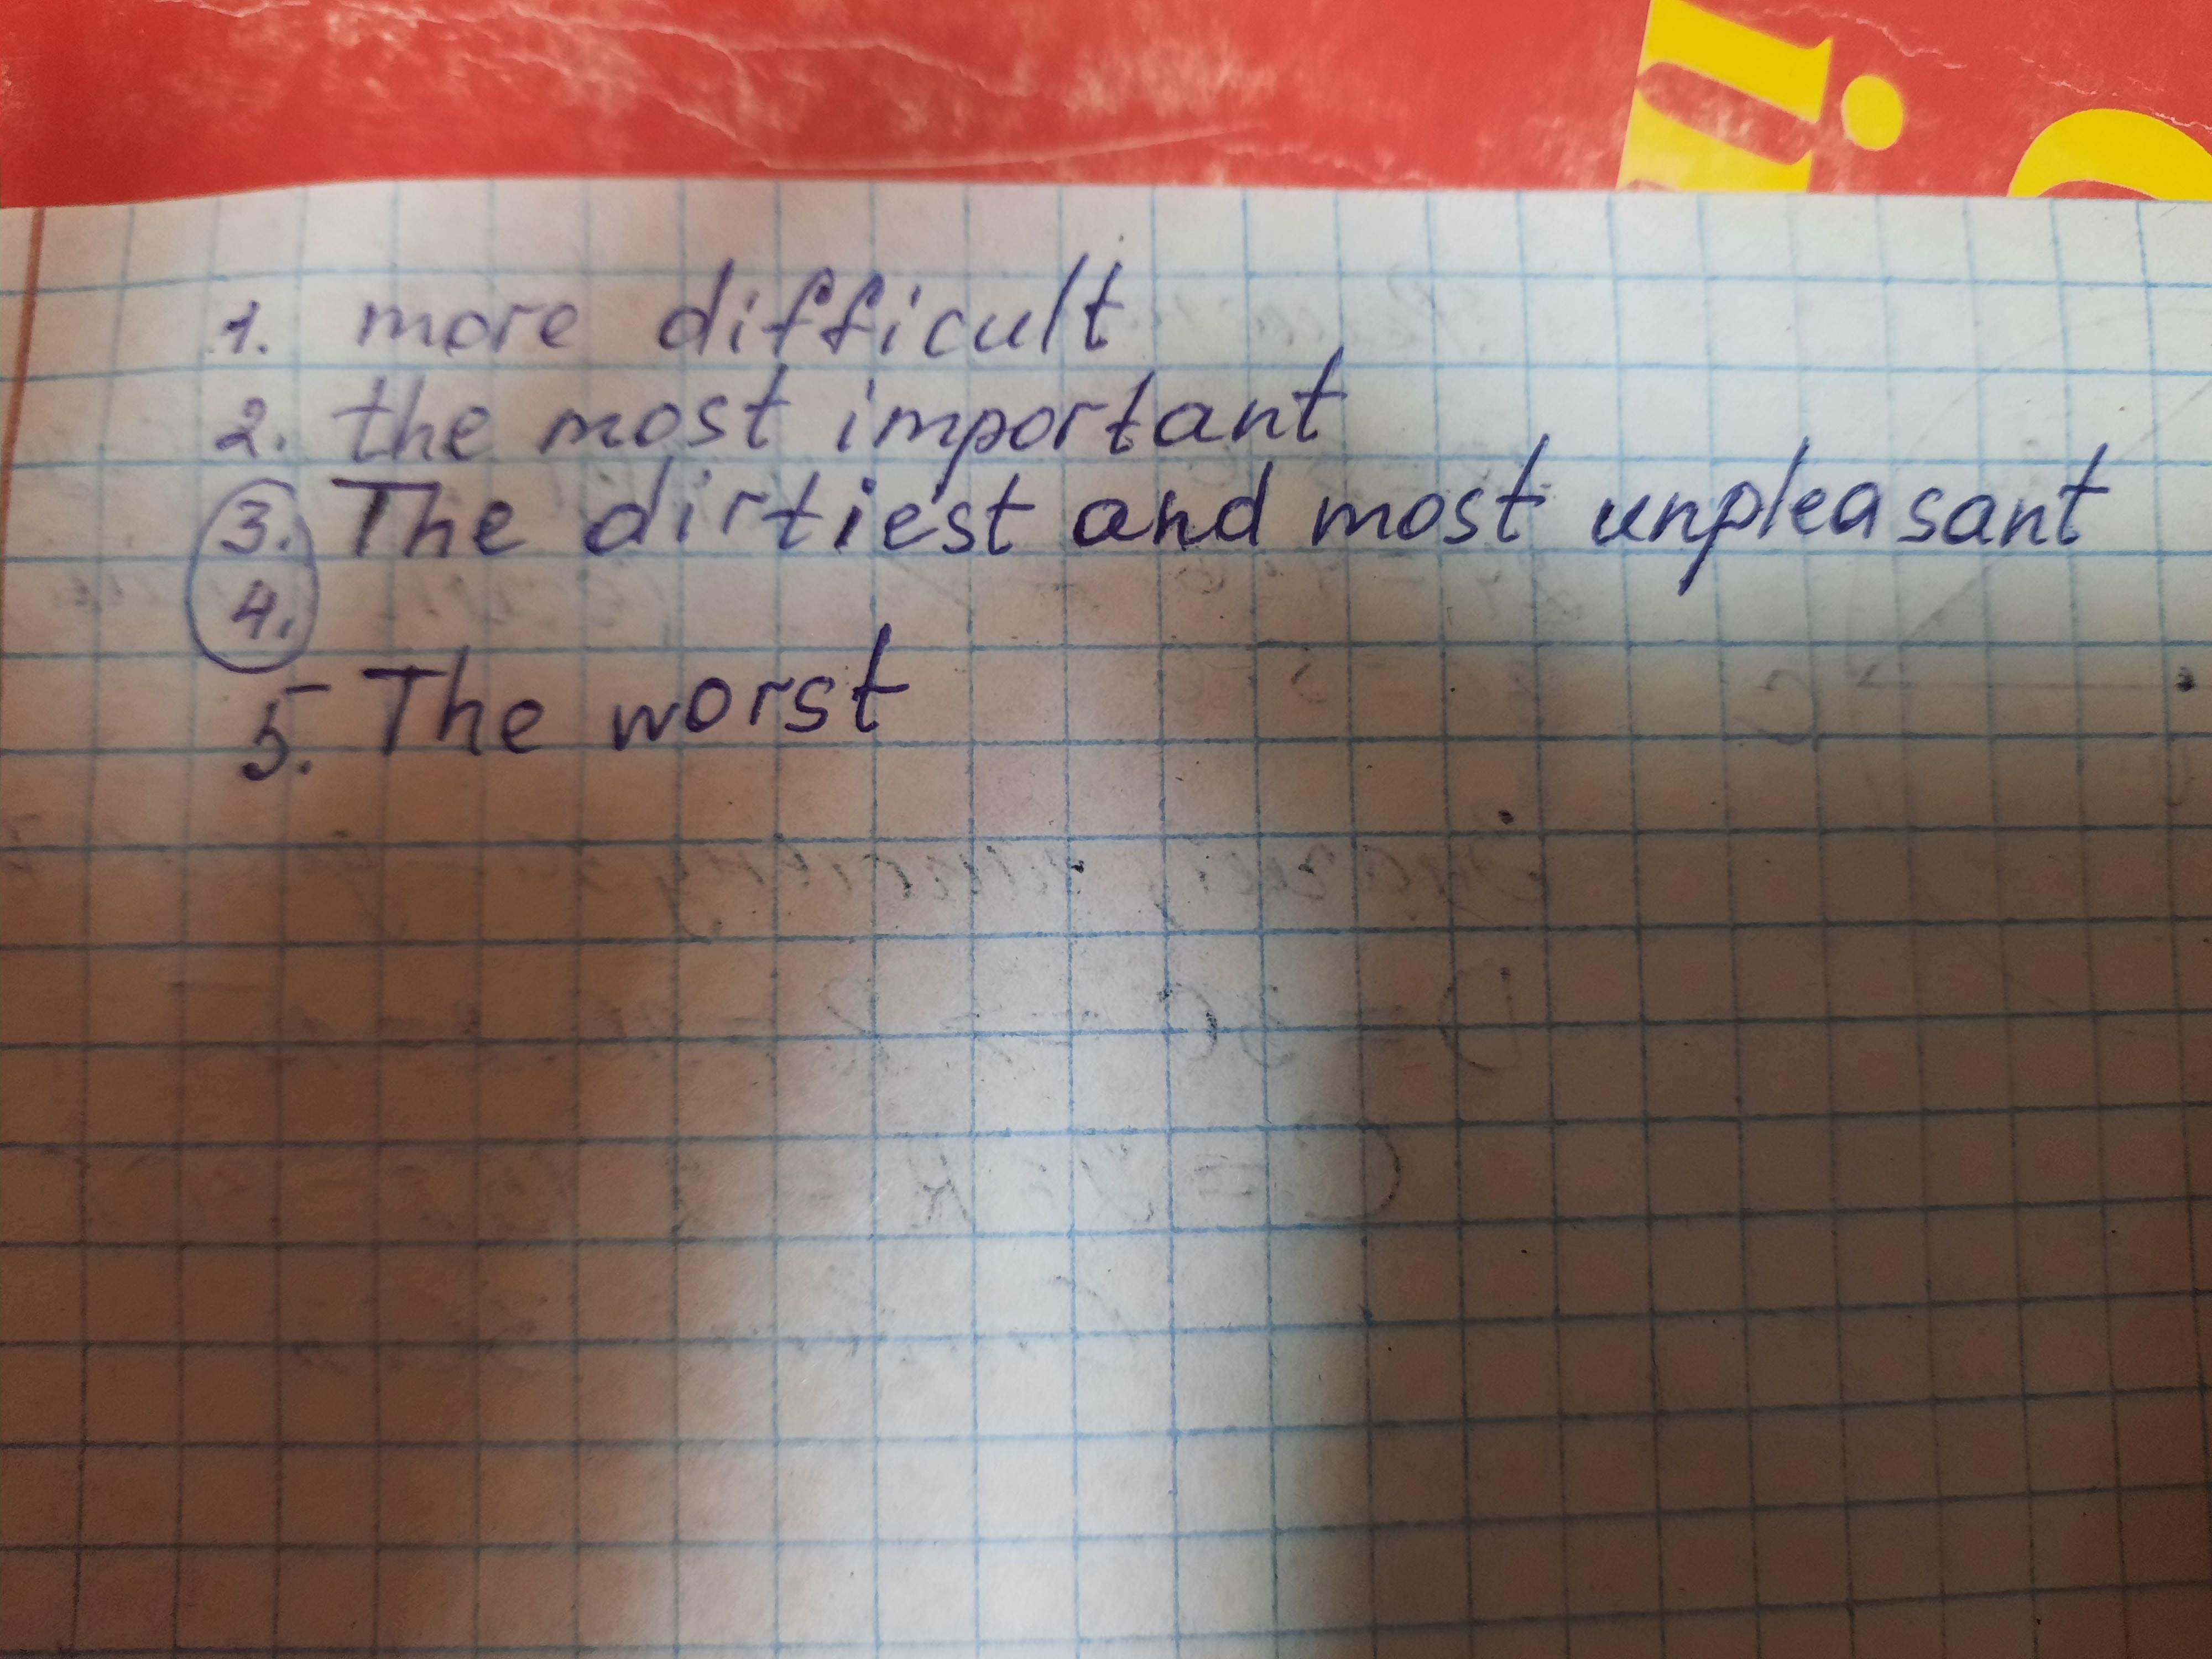 1. more difficult
2. the most important
3. The dirtiest and most unpleasant
4.
5. The worst